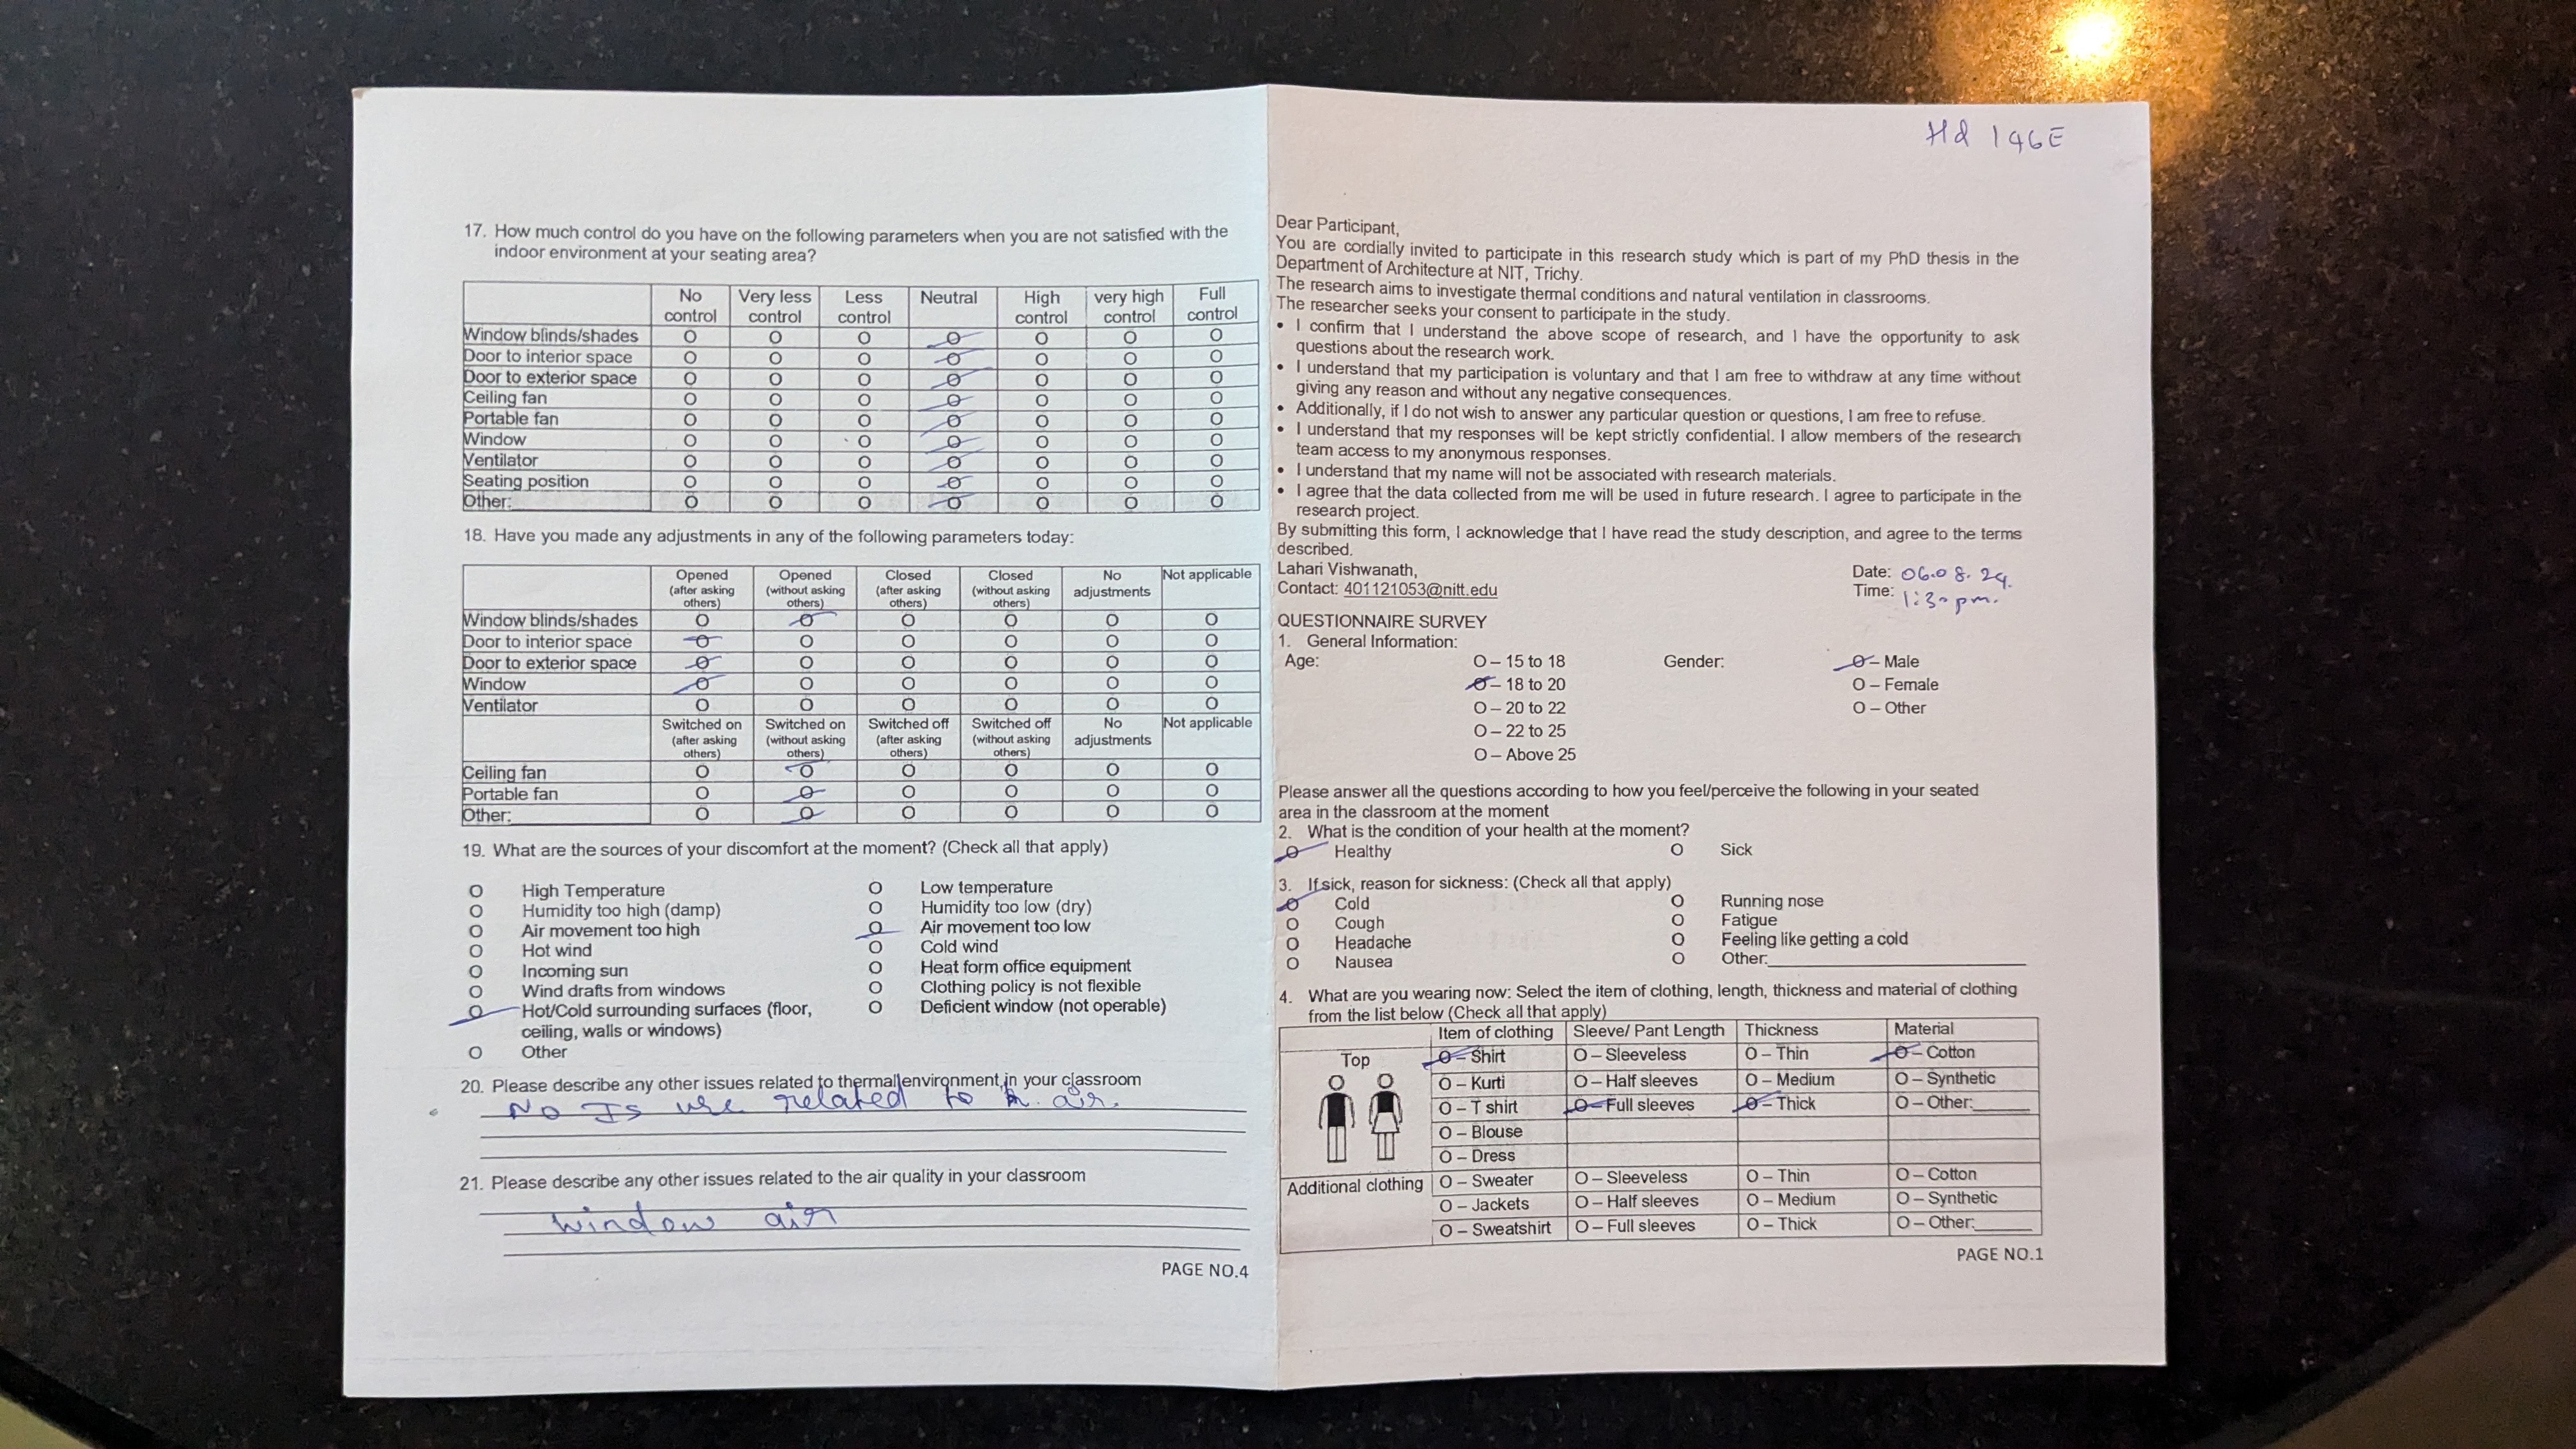 17. How much control do you have on the following parameters when you are not satisfied with the
indoor environment at your seating area?
No control Very less control Less control Neutral High control very high control Full control
Window blinds/shades O O O O O O O
Door to interior space O O O O O O O
Door to exterior space O O O O O O O
Ceiling fan O O O O O O O
Portable fan O O O O O O O
Window O O O O O O O
Ventilator O O O O O O O
Seating position O O O O O O O
Other: O O O O O O O
18. Have you made any adjustments in any of the following parameters today:
Opened (after asking others) Opened (without asking others) Closed (after asking others) Closed (without asking others) No adjustments Not applicable
Window blinds/shades O O O O O O
Door to interior space O O O O O O
Door to exterior space O O O O O O
Window O O O O O O
Ventilator O O O O O O
Switched on (after asking others) Switched on (without asking others) Switched off (after asking others) Switched off (without asking others) No adjustments Not applicable
Ceiling fan O O O O O O
Portable fan O O O O O O
Other: O O O O O O
19. What are the sources of your discomfort at the moment? (Check all that apply)
O High Temperature O Low temperature
O Humidity too high (damp) O Humidity too low (dry)
O Air movement too high O Air movement too low
O Hot wind O Cold wind
O Incoming sun O Heat form office equipment
O Wind drafts from windows O Clothing policy is not flexible
O Hot/Cold surrounding surfaces (floor, O Deficient window (not operable)
ceiling, walls or windows)
O Other
20. Please describe any other issues related to thermal environment in your classroom
No Is use related to air.
21. Please describe any other issues related to the air quality in your classroom
window air
PAGE NO.4
Hd 146E
Dear Participant,
You are cordially invited to participate in this research study which is part of my PhD thesis in the
Department of Architecture at NIT, Trichy.
The research aims to investigate thermal conditions and natural ventilation in classrooms.
The researcher seeks your consent to participate in the study.
• I confirm that I understand the above scope of research, and I have the opportunity to ask
questions about the research work.
• I understand that my participation is voluntary and that I am free to withdraw at any time without
giving any reason and without any negative consequences.
• Additionally, if I do not wish to answer any particular question or questions, I am free to refuse.
• I understand that my responses will be kept strictly confidential. I allow members of the research
team access to my anonymous responses.
• I understand that my name will not be associated with research materials.
• I agree that the data collected from me will be used in future research. I agree to participate in the
research project.
By submitting this form, I acknowledge that I have read the study description, and agree to the terms
described.
Lahari Vishwanath, Date: 06.08.24.
Contact: 401121053@nitt.edu Time: 1:30 pm.
QUESTIONNAIRE SURVEY
1. General Information:
Age: O – 15 to 18 Gender: O – Male
O – 18 to 20 O – Female
O – 20 to 22 O – Other
O – 22 to 25
O – Above 25
Please answer all the questions according to how you feel/perceive the following in your seated
area in the classroom at the moment
2. What is the condition of your health at the moment?
O Healthy O Sick
3. If sick, reason for sickness: (Check all that apply)
O Cold O Running nose
O Cough O Fatigue
O Headache O Feeling like getting a cold
O Nausea O Other:
4. What are you wearing now: Select the item of clothing, length, thickness and material of clothing
from the list below (Check all that apply)
Item of clothing Sleeve/ Pant Length Thickness Material
Top O – Shirt O – Sleeveless O – Thin O – Cotton
O – Kurti O – Half sleeves O – Medium O – Synthetic
O – T shirt O – Full sleeves O – Thick O – Other:
O – Blouse
O – Dress
Additional clothing O – Sweater O – Sleeveless O – Thin O – Cotton
O – Jackets O – Half sleeves O – Medium O – Synthetic
O – Sweatshirt O – Full sleeves O – Thick O – Other:
PAGE NO.1